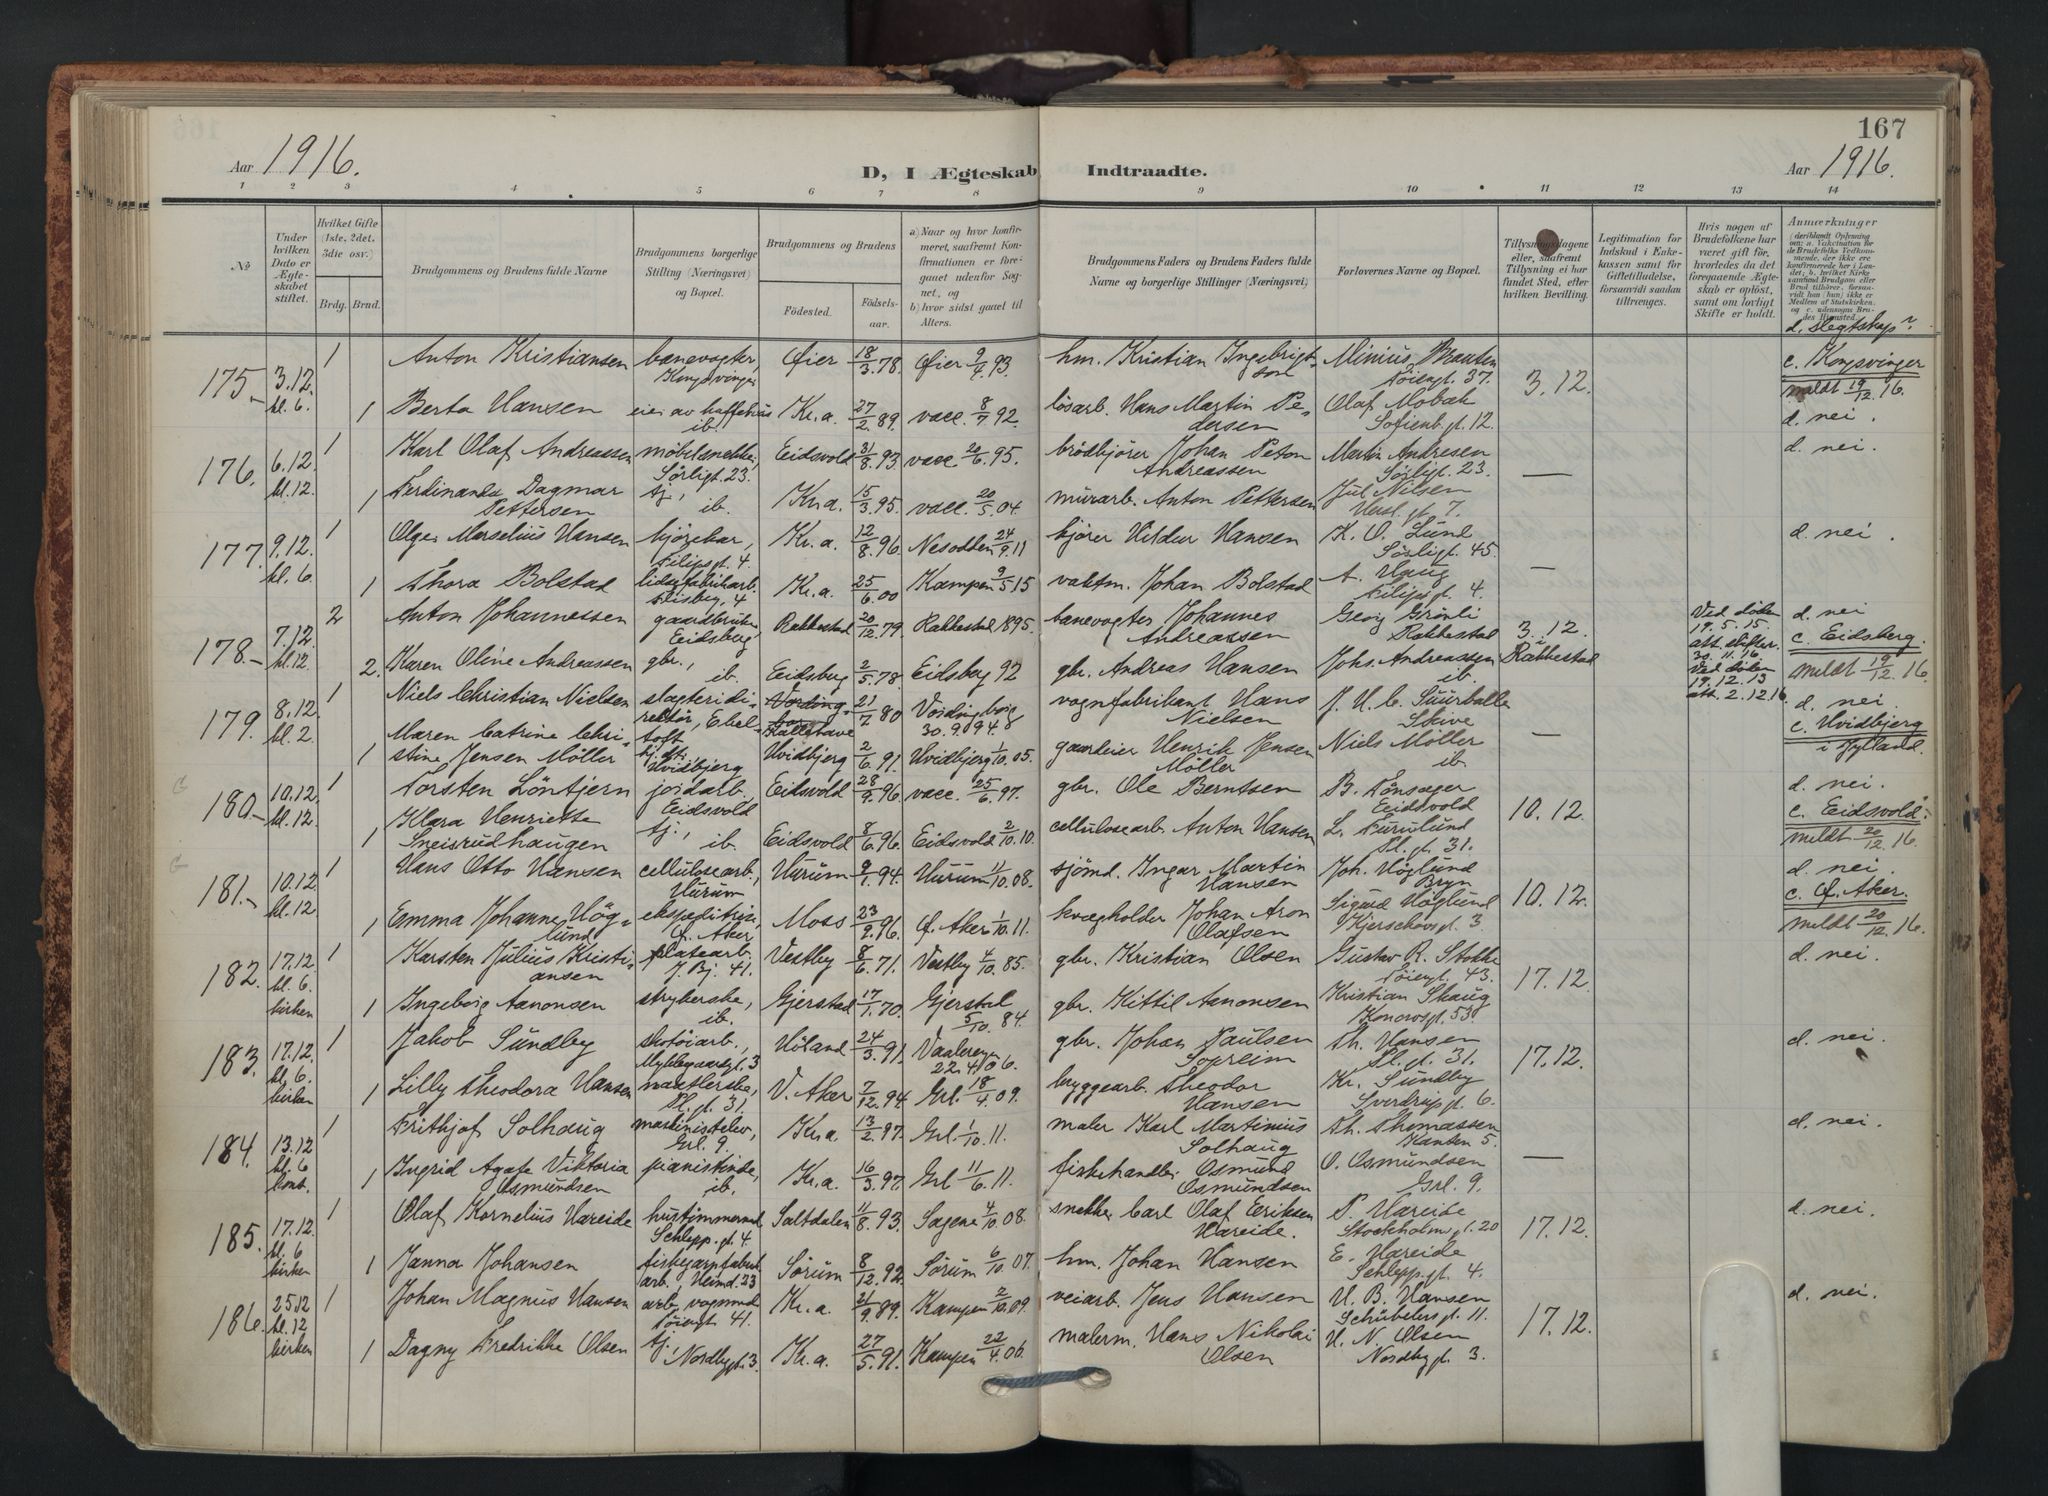 Aar 1916.
D, I Ægteskab Indtraadte.
167
Aar 1916.
1 2 3 4 5 6 7 8 9 10 11 12 13 14
No
Under hvilken Dato er Ægteskabet stiftet.
Hvilket Gifte (1ste, 2det, 3die osv.)
Brdg. Brud.
Brudgommens og Brudens fulde Navne
Brudgommens borgerlige Stilling (Næringsvei) og Bopæl.
Brudgommens og Brudens
Fødested.
Fødsels-aar.
a) Naar og hvor konfirmeret, saafremt Konfirmationen er foregaaet udenfor Sognet, og
b) hvor sidst gaaet til Alters.
Brudgommens Faders og Brudens Faders fulde Navne og borgerlige Stillinger (Næringsvei)
Forlovernes Navne og Bopæl.
Tillysningsdagene eller, saafremt Tillysning ei har fundet Sted, efter hvilken Bevilling.
Legitimation for Indskud i Enkekassen samt for Giftetilladelse, forsaavidt saadan tiltrænges.
Hvis nogen af Brudefolkene har været gift før, hvorledes da det foregaaende Ægteskab er opløst, samt om lovligt Skifte er holdt.
Anmærkninger
d. slegtskap?
175. 3.12. kl. 6. 1 Anton Kristiansen banevogter, Kongsvinger Øier 18/3.78. Øier 9/4.93 hm. Kristian Ingebrigtsen Minius Braaten Töiengt. 37. 3.12. c. Kongsvinger
meldt 19/12.16.
1 Berta Hansen eier av kaffehus ib. Kr.a. 27/2.89. vacc. 8/7 92. lösarb. Hans Martin Pedersen Olaf Mobak Sofienb.gt. 12. d. nei.
176. 6.12. kl. 12. 1 Karl Olaf Andreassen möbelsnekker, Sörligt. 23. Eidsvold 31/8.93 vacc 20/6.95. brödkjörer Johan Peton Andreassen Martin Andresen Sörligt. 23. — d. nei.
1 Ferdinanda Dagmar Pettersen tj., ib. Kr.a. 15/3.95. vacc. 20/5.04. murarb. Anton Pettersen Jul. Nilsen
177. 9.12. kl. 6. 1 Marselius Hansen kjörekar, Filipsgt. 4 Kr.a. 12/8.96. Nesodden 24/9.11 kjörer Hildur Hansen K. O. Lund Sörligt. 45. — d. nei.
1 Thora Bolstad Kr.a. 25/6.00 Kampen 9/5 15 vaktm. Johan Bolstad A. Haug Filipsgt. 4.
178. 7.12. kl. 12. 2 Anton Johannessen gaardbruker, Eidsberg Rakkestad 20/12.79. Rakkestad 1895. banevogter Johannes Andreassen Georg Grönli Rakkestad 3.12. i Rakkestad Ved döden 19.5.15. att. skifter. 30.11.16. d. nei
c. Eidsberg.
2. Karen Oline Andreassen gbr., ib. Eidsberg 2/5.78. Eidsberg 92 gbr. Andreas Hansen Johs. Andreassen ib. Ved döden 19.12.13 att. 2.12.16. meldt 19/12.16.
179. 8.12. kl. 2. 1 Niels Christian Nielsen slagteridirektör, Ebeltoft Kallehave 21/7 80 Vordingborg 30.9.94. vognfabrikant Hans Nielsen J. H. C. Suurballe Skive — d. nei.
c. Hvidbjerg i Jylland.
1 Maren Catrine Christine Jensen Möller Hvidbjerg Hvidbjerg 2/6.91. Hvidbjerg 1/10.05. gaardeier Henrik Jensen Möller Niels Möller ib.
180. 10.12. kl. 12. 1 Torsten Löntjern jordarb., Eidsvold Eidsvold 28/9.96. vacc. 25/6.97. gbr. Ole Berntsen B. Tönsager Eidsvold 10.12. d. nei.
c. Eidsvold.
1 Klara Henriette Sneisrudhaugen tj., ib. Eidsvold 8/6.96. Eidsvold 2/10.10. cellulosearb. Anton Hansen L. Furulund Pl. gt. 31. meldt 20/12.16.
181. 10.12. kl. 12 1 Hans Otto Hansen cellulosearb., Hurum Hurum 9/1.94. Hurum 11/10.08. sjömd. Ingar Martin Hansen Joh. Höglund Bryn 10.12. d. nei.
c. Ø. Aker.
1 Emma Johanne Höglund ekspeditrise, Ø. Aker, Moss 23/9.96. Ø. Aker 1/10.11. kvægholder Johan Aron Olafsen Sigurd Höglund Kjerschowsgt. 3 meldt 20/12.16.
182. 17.12. kl. 6. kirken 1 Karsten Julius Kristiansen platearb. J. Bj. 41. Vestby 8/6.71. Vestby 4/10.85. gbr. Kristian Olsen Gustav R. Stokke Töiengt. 43. 17.12. d. nei.
1 Ingeborg Aanonsen strykerske, ib. Gjerstad 17/1.70. Gjerstad 5/10.84. gbr. Kittil Aanonsen Kristian Skaug Konowsgt. 53.
183. 17.12. kl. 6. kirken 1 Jakob Sundby skotöiarb., Höland 24/3.91. Vaalerengen 22.4.06. gbr. Johan Paulsen Th. Hansen Pl. gt. 31. 17.12. d. nei.
1 Lilly Theodora Hansen Pl. gt. 31. V. Aker 7/12.94. Grl. 18/4.09. bryggearb. Theodor Hansen Kr. Sundby Sverdrupsgt. 6.
184. 13.12 kl. 6 kont. 1 Frithjof Solhaug maskinistelev, Grl. 9. Kr.a. 13/2.97. Grl. 1/10.11. maler Karl Martinius Solhaug Th. Thomassen Kanten 5. — d. nei.
1 Ingrid Agate Viktoria Osmundsen pianistinde, ib. Kr.a. 16/3.97. Grl 11/6.11. fiskehandler Osmund Osmundsen O. Osmundsen Grl. 9.
185. 17.12. kl. 6 kirken 1 Olaf Kornelius Hareide hustimmermd, Schlepp.gt. 4. Saltdalen 11/8.93. Sagene 4/10.08. snekker Carl Olaf Eriksen Hareide. P. Hareide Stockholmsgt. 20 17.12. d. nei.
1 Janna Johansen Heimd. 23 Sörum 8/12.92. Sörum 6/10.07. hm. Johan Hansen E. Hareide Schlepp.gt. 4.
186. 25.12 kl. 12 kirken 1 Johan Magnus Hansen Töiengt 41. Kr.a. 21/9.89. Kampen 2/10.09. veiarb. Jens Hansen H. B. Hansen Schübelersgt. 11. 17.12. d. nei.
1 Dagny Fredrikke Olsen tj., Nordbygt. 3 Kr.a. 27/5.91. Kampen 22/4.06. malerm. Hans Nikolai Olsen H. N. Olsen Nordbygt. 3.